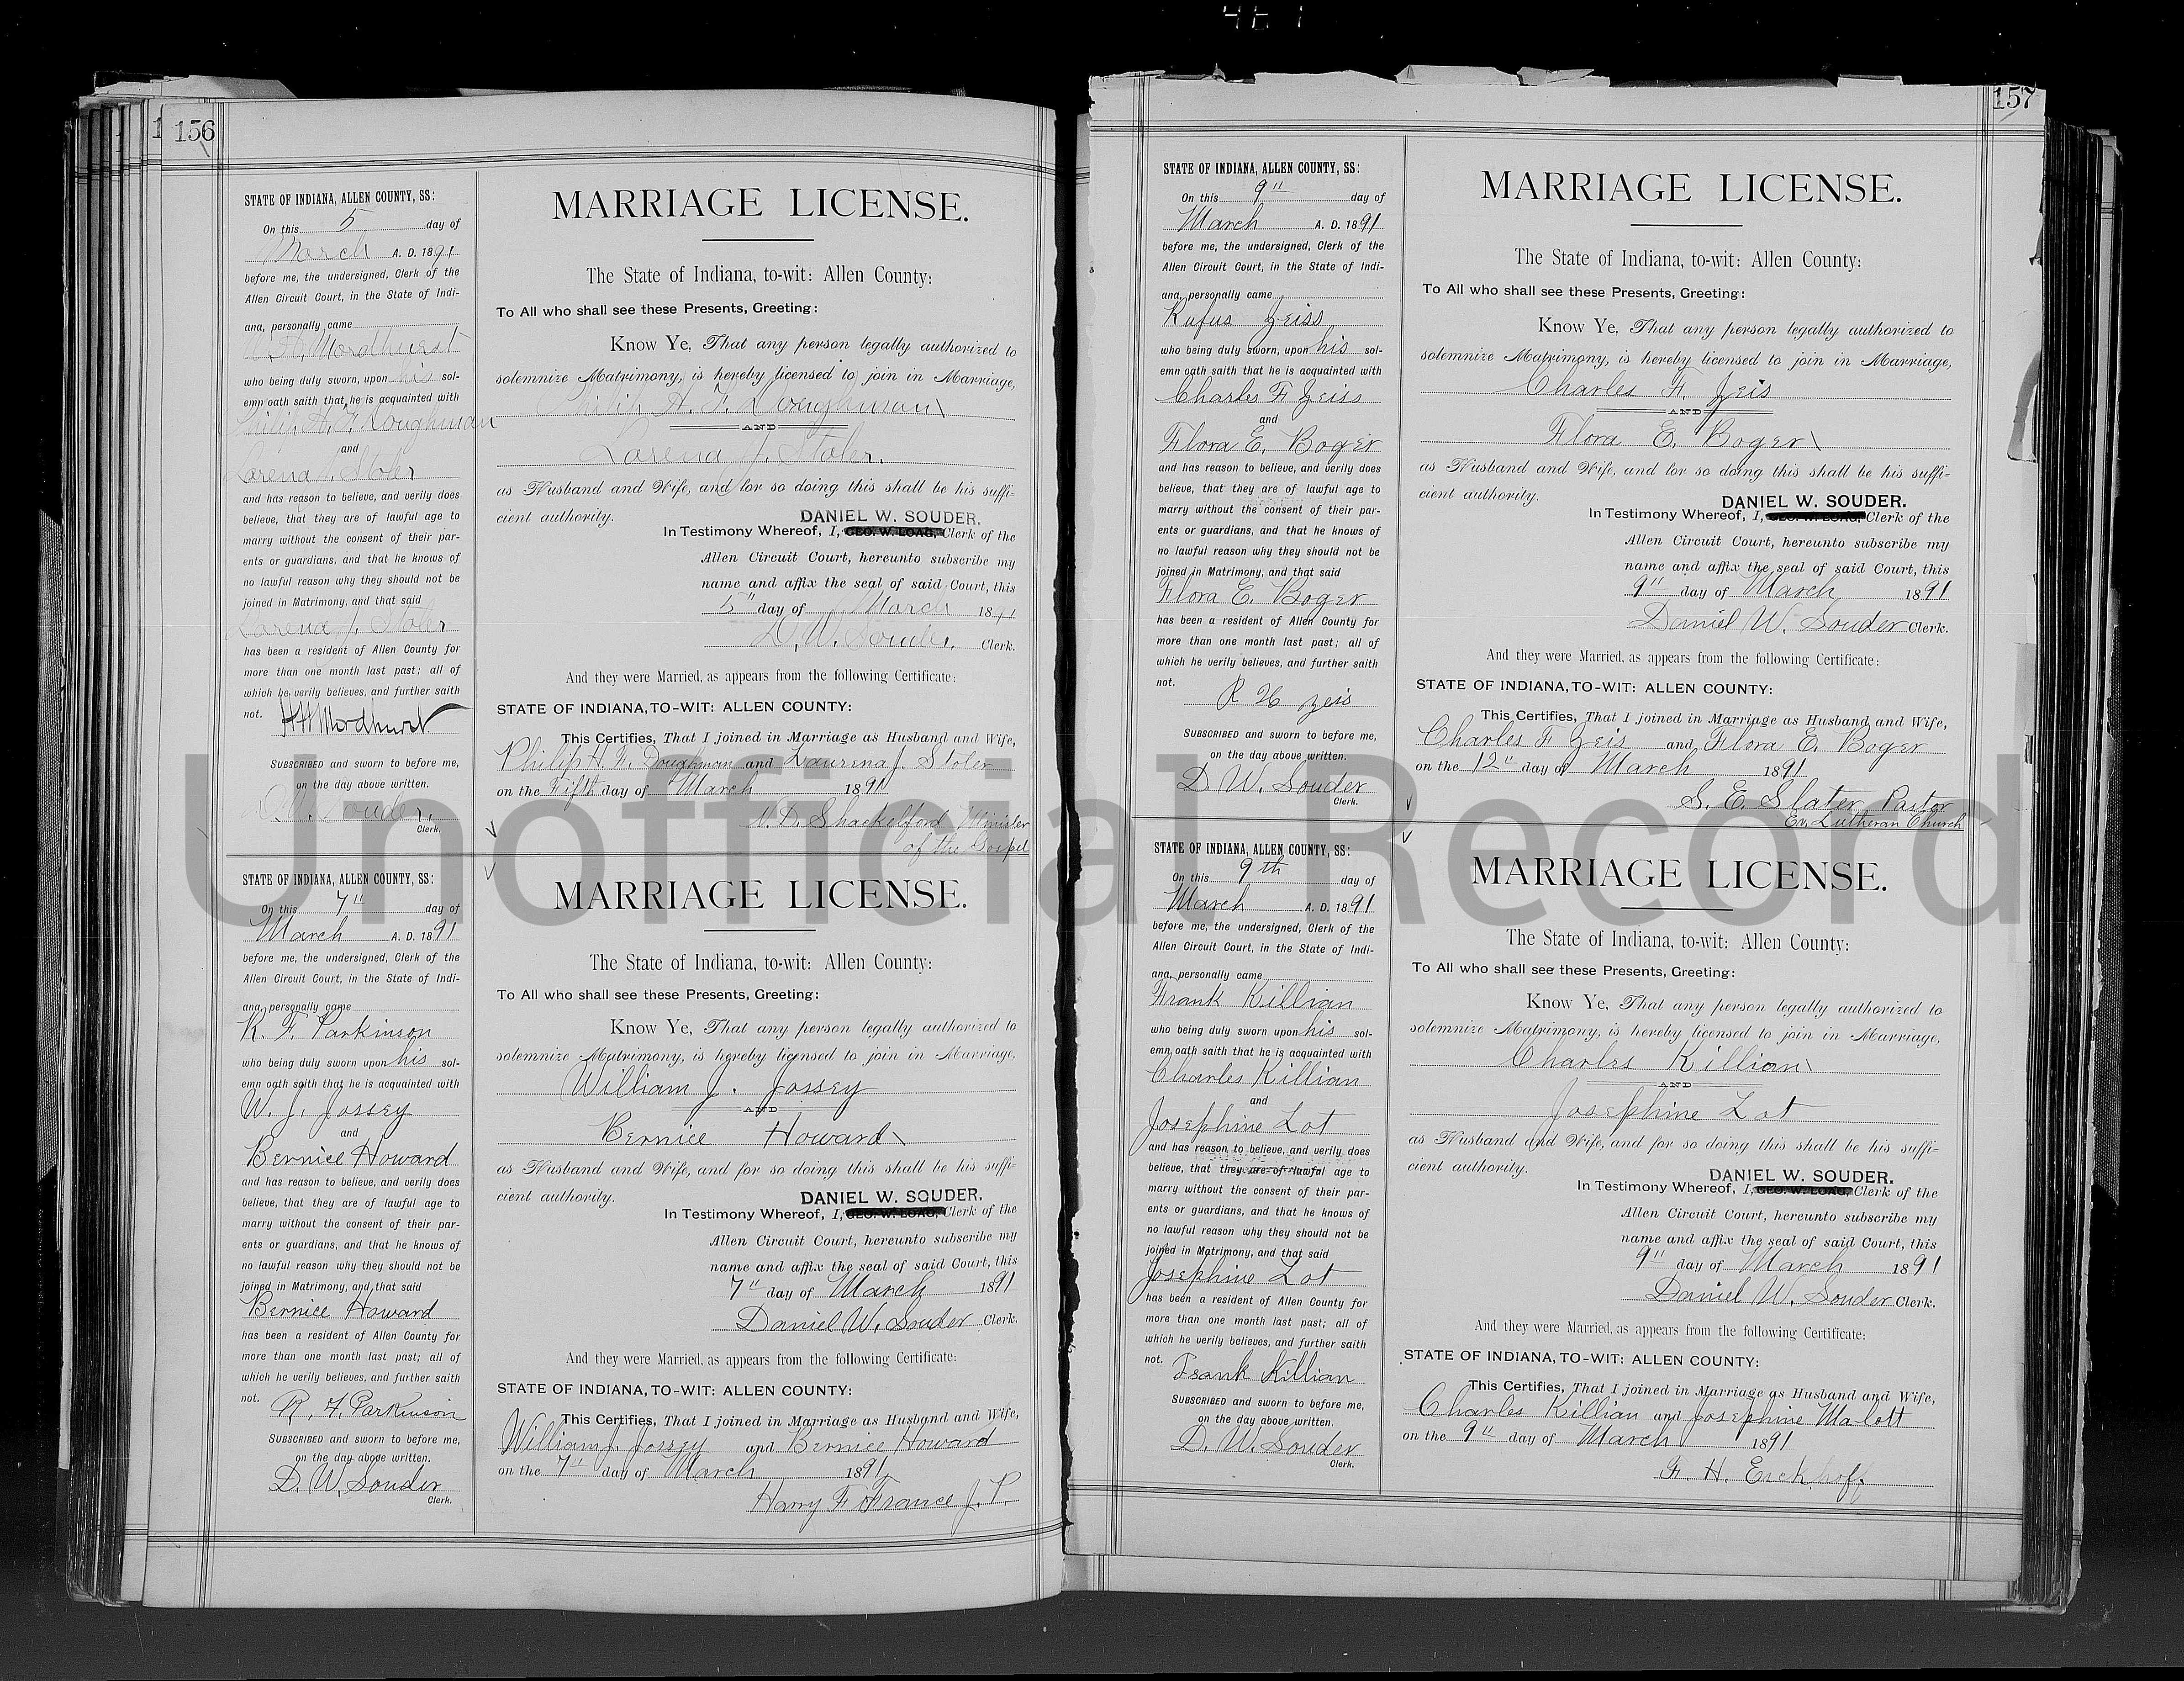 461
156
STATE OF INDIANA, ALLEN COUNTY, SS:
On this 5 day of
March A. D. 1891
before me, the undersigned, Clerk of the
Allen Circuit Court, in the State of Indi-
ana, personally came
Mordhurst
who being duly sworn, upon his sol-
emn oath saith that he is acquainted with
Philip H. F. Doughman
and
Lorena J. Stoler
and has reason to believe, and verily does
believe, that they are of lawful age to
marry without the consent of their par-
ents or guardians, and that he knows of
no lawful reason why they should not be
joined in Matrimony, and that said
Lorena J. Stoler
has been a resident of Allen County for
more than one month last past; all of
which he verily believes, and further saith
not. H H Mordhurst
SUBSCRIBED and sworn to before me,
on the day above written.
D. W. Souder,
Clerk.
MARRIAGE LICENSE.
The State of Indiana, to-wit: Allen County:
To All who shall see these Presents, Greeting:
Know Ye, That any person legally authorized to
solemnize Matrimony, is hereby licensed to join in Marriage,
Philip H. F. Doughman
AND
Lorena J. Stoler.
as Husband and Wife, and for so doing this shall be his suffi-
cient authority.
DANIEL W. SOUDER.
In Testimony Whereof, I, GEO. W. LOAG, Clerk of the
Allen Circuit Court, hereunto subscribe my
name and affix the seal of said Court, this
5" day of March 1891
D. W. Souder, Clerk.
And they were Married, as appears from the following Certificate:
STATE OF INDIANA, TO-WIT: ALLEN COUNTY:
This Certifies, That I joined in Marriage as Husband and Wife,
Philip H. F. Doughman and Laurena J. Stoler
on the Fifth day of March 1891
N. D. Shackelford Minister
of the Gospel
STATE OF INDIANA, ALLEN COUNTY, SS:
On this 7" day of
March A. D. 1891
before me, the undersigned, Clerk of the
Allen Circuit Court, in the State of Indi-
ana, personally came
R. F. Parkinson
who being duly sworn upon his sol-
emn oath saith that he is acquainted with
W. J. Jossey
and
Bernice Howard
and has reason to believe, and verily does
believe, that they are of lawful age to
marry without the consent of their par-
ents or guardians, and that he knows of
no lawful reason why they should not be
joined in Matrimony, and that said
Bernice Howard
has been a resident of Allen County for
more than one month last past; all of
which he verily believes, and further saith
not. R. F. Parkinson
SUBSCRIBED and sworn to before me,
on the day above written.
D. W. Souder
Clerk.
MARRIAGE LICENSE.
The State of Indiana, to-wit: Allen County:
To All who shall see these Presents, Greeting:
Know Ye, That any person legally authorized to
solemnize Matrimony, is hereby licensed to join in Marriage,
William J. Jossey
AND
Bernice Howard
as Husband and Wife, and for so doing this shall be his suffi-
cient authority.
DANIEL W. SOUDER.
In Testimony Whereof, I, GEO. W. LOAG, Clerk of the
Allen Circuit Court, hereunto subscribe my
name and affix the seal of said Court, this
7" day of March 1891
Daniel W. Souder Clerk.
And they were Married, as appears from the following Certificate:
STATE OF INDIANA, TO-WIT: ALLEN COUNTY:
This Certifies, That I joined in Marriage as Husband and Wife,
William J. Jossey and Bernice Howard
on the 7" day of March 1891
Harry F. France J. P.
157
STATE OF INDIANA, ALLEN COUNTY, SS:
On this 9" day of
March A. D. 1891
before me, the undersigned, Clerk of the
Allen Circuit Court, in the State of Indi-
ana, personally came
Rufus Zeiss
who being duly sworn, upon his sol-
emn oath saith that he is acquainted with
Charles F Zeiss
and
Flora E. Boger
and has reason to believe, and verily does
believe, that they are of lawful age to
marry without the consent of their par-
ents or guardians, and that he knows of
no lawful reason why they should not be
joined in Matrimony, and that said
Flora E. Boger
has been a resident of Allen County for
more than one month last past; all of
which he verily believes, and further saith
not.
R H Zeis
SUBSCRIBED and sworn to before me,
on the day above written.
D. W. Souder
Clerk.
MARRIAGE LICENSE.
The State of Indiana, to-wit: Allen County:
To All who shall see these Presents, Greeting:
Know Ye, That any person legally authorized to
solemnize Matrimony, is hereby licensed to join in Marriage,
Charles F. Zeis
AND
Flora E. Boger
as Husband and Wife, and for so doing this shall be his suffi-
cient authority.
DANIEL W. SOUDER.
In Testimony Whereof, I, GEO. W. LOAG, Clerk of the
Allen Circuit Court, hereunto subscribe my
name and affix the seal of said Court, this
9" day of March 1891
Daniel W. Souder Clerk.
And they were Married, as appears from the following Certificate:
STATE OF INDIANA, TO-WIT: ALLEN COUNTY:
This Certifies, That I joined in Marriage as Husband and Wife,
Charles F Zeis and Flora E. Boger
on the 12" day of March 1891
S. E. Slater Pastor
Ev. Lutheran Church
STATE OF INDIANA, ALLEN COUNTY, SS:
On this 9th day of
March A. D. 1891
before me, the undersigned, Clerk of the
Allen Circuit Court, in the State of Indi-
ana, personally came
Frank Killian
who being duly sworn upon his sol-
emn oath saith that he is acquainted with
Charles Killian
and
Josephine Lot
and has reason to believe, and verily does
believe, that they are of lawful age to
marry without the consent of their par-
ents or guardians, and that he knows of
no lawful reason why they should not be
joined in Matrimony, and that said
Josephine Lot
has been a resident of Allen County for
more than one month last past; all of
which he verily believes, and further saith
not. Frank Killian
SUBSCRIBED and sworn to before me,
on the day above written.
D. W. Souder
Clerk.
MARRIAGE LICENSE.
The State of Indiana, to-wit: Allen County:
To All who shall see these Presents, Greeting:
Know Ye, That any person legally authorized to
solemnize Matrimony, is hereby licensed to join in Marriage,
Charles Killian
AND
Josephine Lot
as Husband and Wife, and for so doing this shall be his suffi-
cient authority.
DANIEL W. SOUDER.
In Testimony Whereof, I, GEO. W. LOAG, Clerk of the
Allen Circuit Court, hereunto subscribe my
name and affix the seal of said Court, this
9" day of March 1891
Daniel W. Souder Clerk.
And they were Married, as appears from the following Certificate:
STATE OF INDIANA, TO-WIT: ALLEN COUNTY:
This Certifies, That I joined in Marriage as Husband and Wife,
Charles Killian and Josephine Malott
on the 9" day of March 1891
F. H. Eickhoff
Unofficial Record